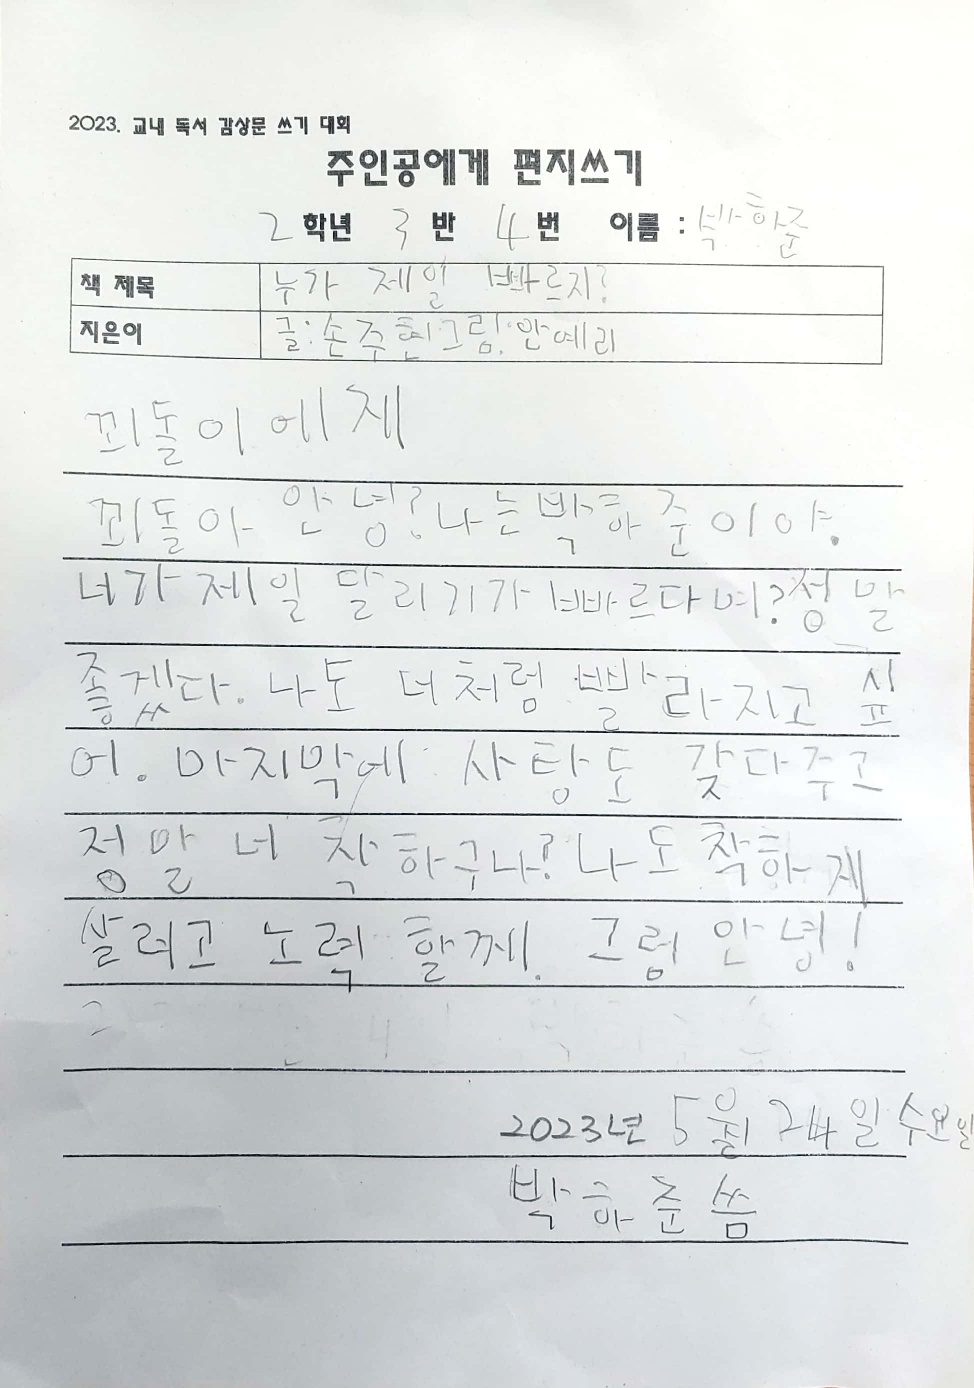 2023. 교내 독서 감상문 쓰기 대회
주인공에게 편지쓰기
2 학년 3 반 4 번 이름 : 박하준
책 제목 누가 제일 빠르지?
지은이 글:손주현 그림:안예리
꾀돌이에게
꾀돌아 안녕? 나는 박하준이야.
너가 제일 달리기가 빠르다며? 정말
좋겠다. 나도 너처럼 빨라지고 싶
어. 마지막에 사탕도 갖다주고
정말 너 착하구나? 나도 착하게
살려고 노력 할께. 그럼 안녕!
2023년 5월 24일 수요일
박하준 씀